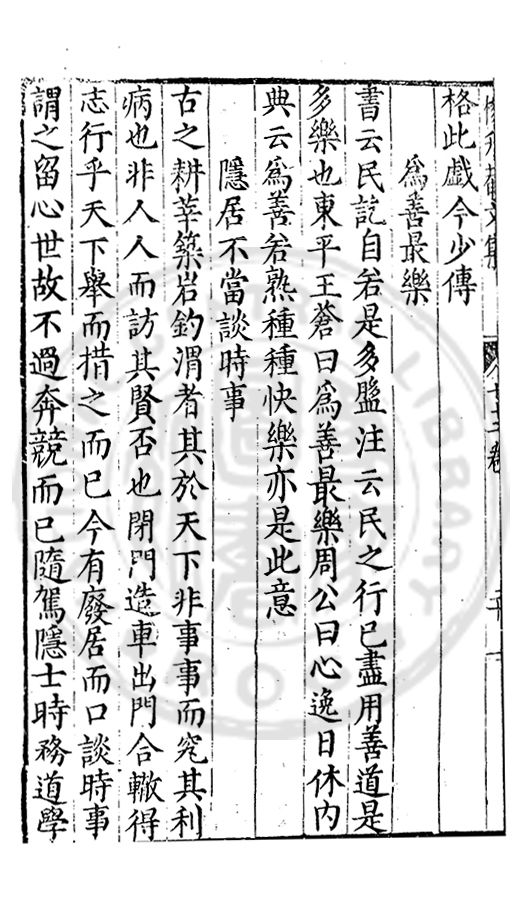 格此戲今少傳
爲善最樂
書云民訖自若是多盤注云民之行已盡用善道是
多樂也東平王蒼曰爲善最樂周公曰心逸日休内
典云爲善若熟種種快樂亦是此意
隱居不當談時事
古之耕莘築岩釣渭者其於天下非事事而究其利
病也非人人而訪其賢否也閉門造車出門合轍得
志行乎天下舉而措之而已今有廢居而口談時事
謂之留心世故不過奔競而已隨駕隱士時務道學